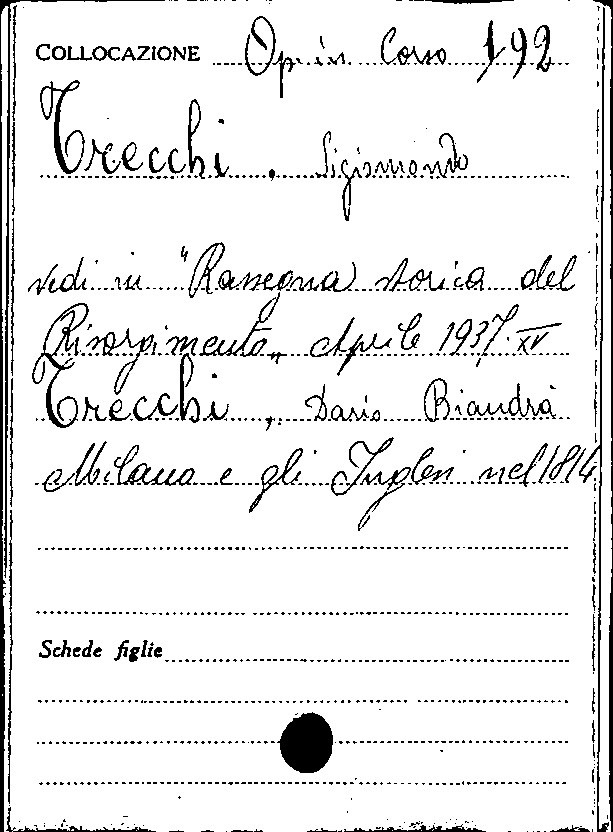 COLLOCAZIONE Op. in Corso 192
Trecchi, Sigismondo
vedi in "Rassegna storica del
Risorgimento„ Aprile 1937. XV
Trecchi, Dario Biandrà
Milano e gli Inglesi nel 1814
Schede figlie